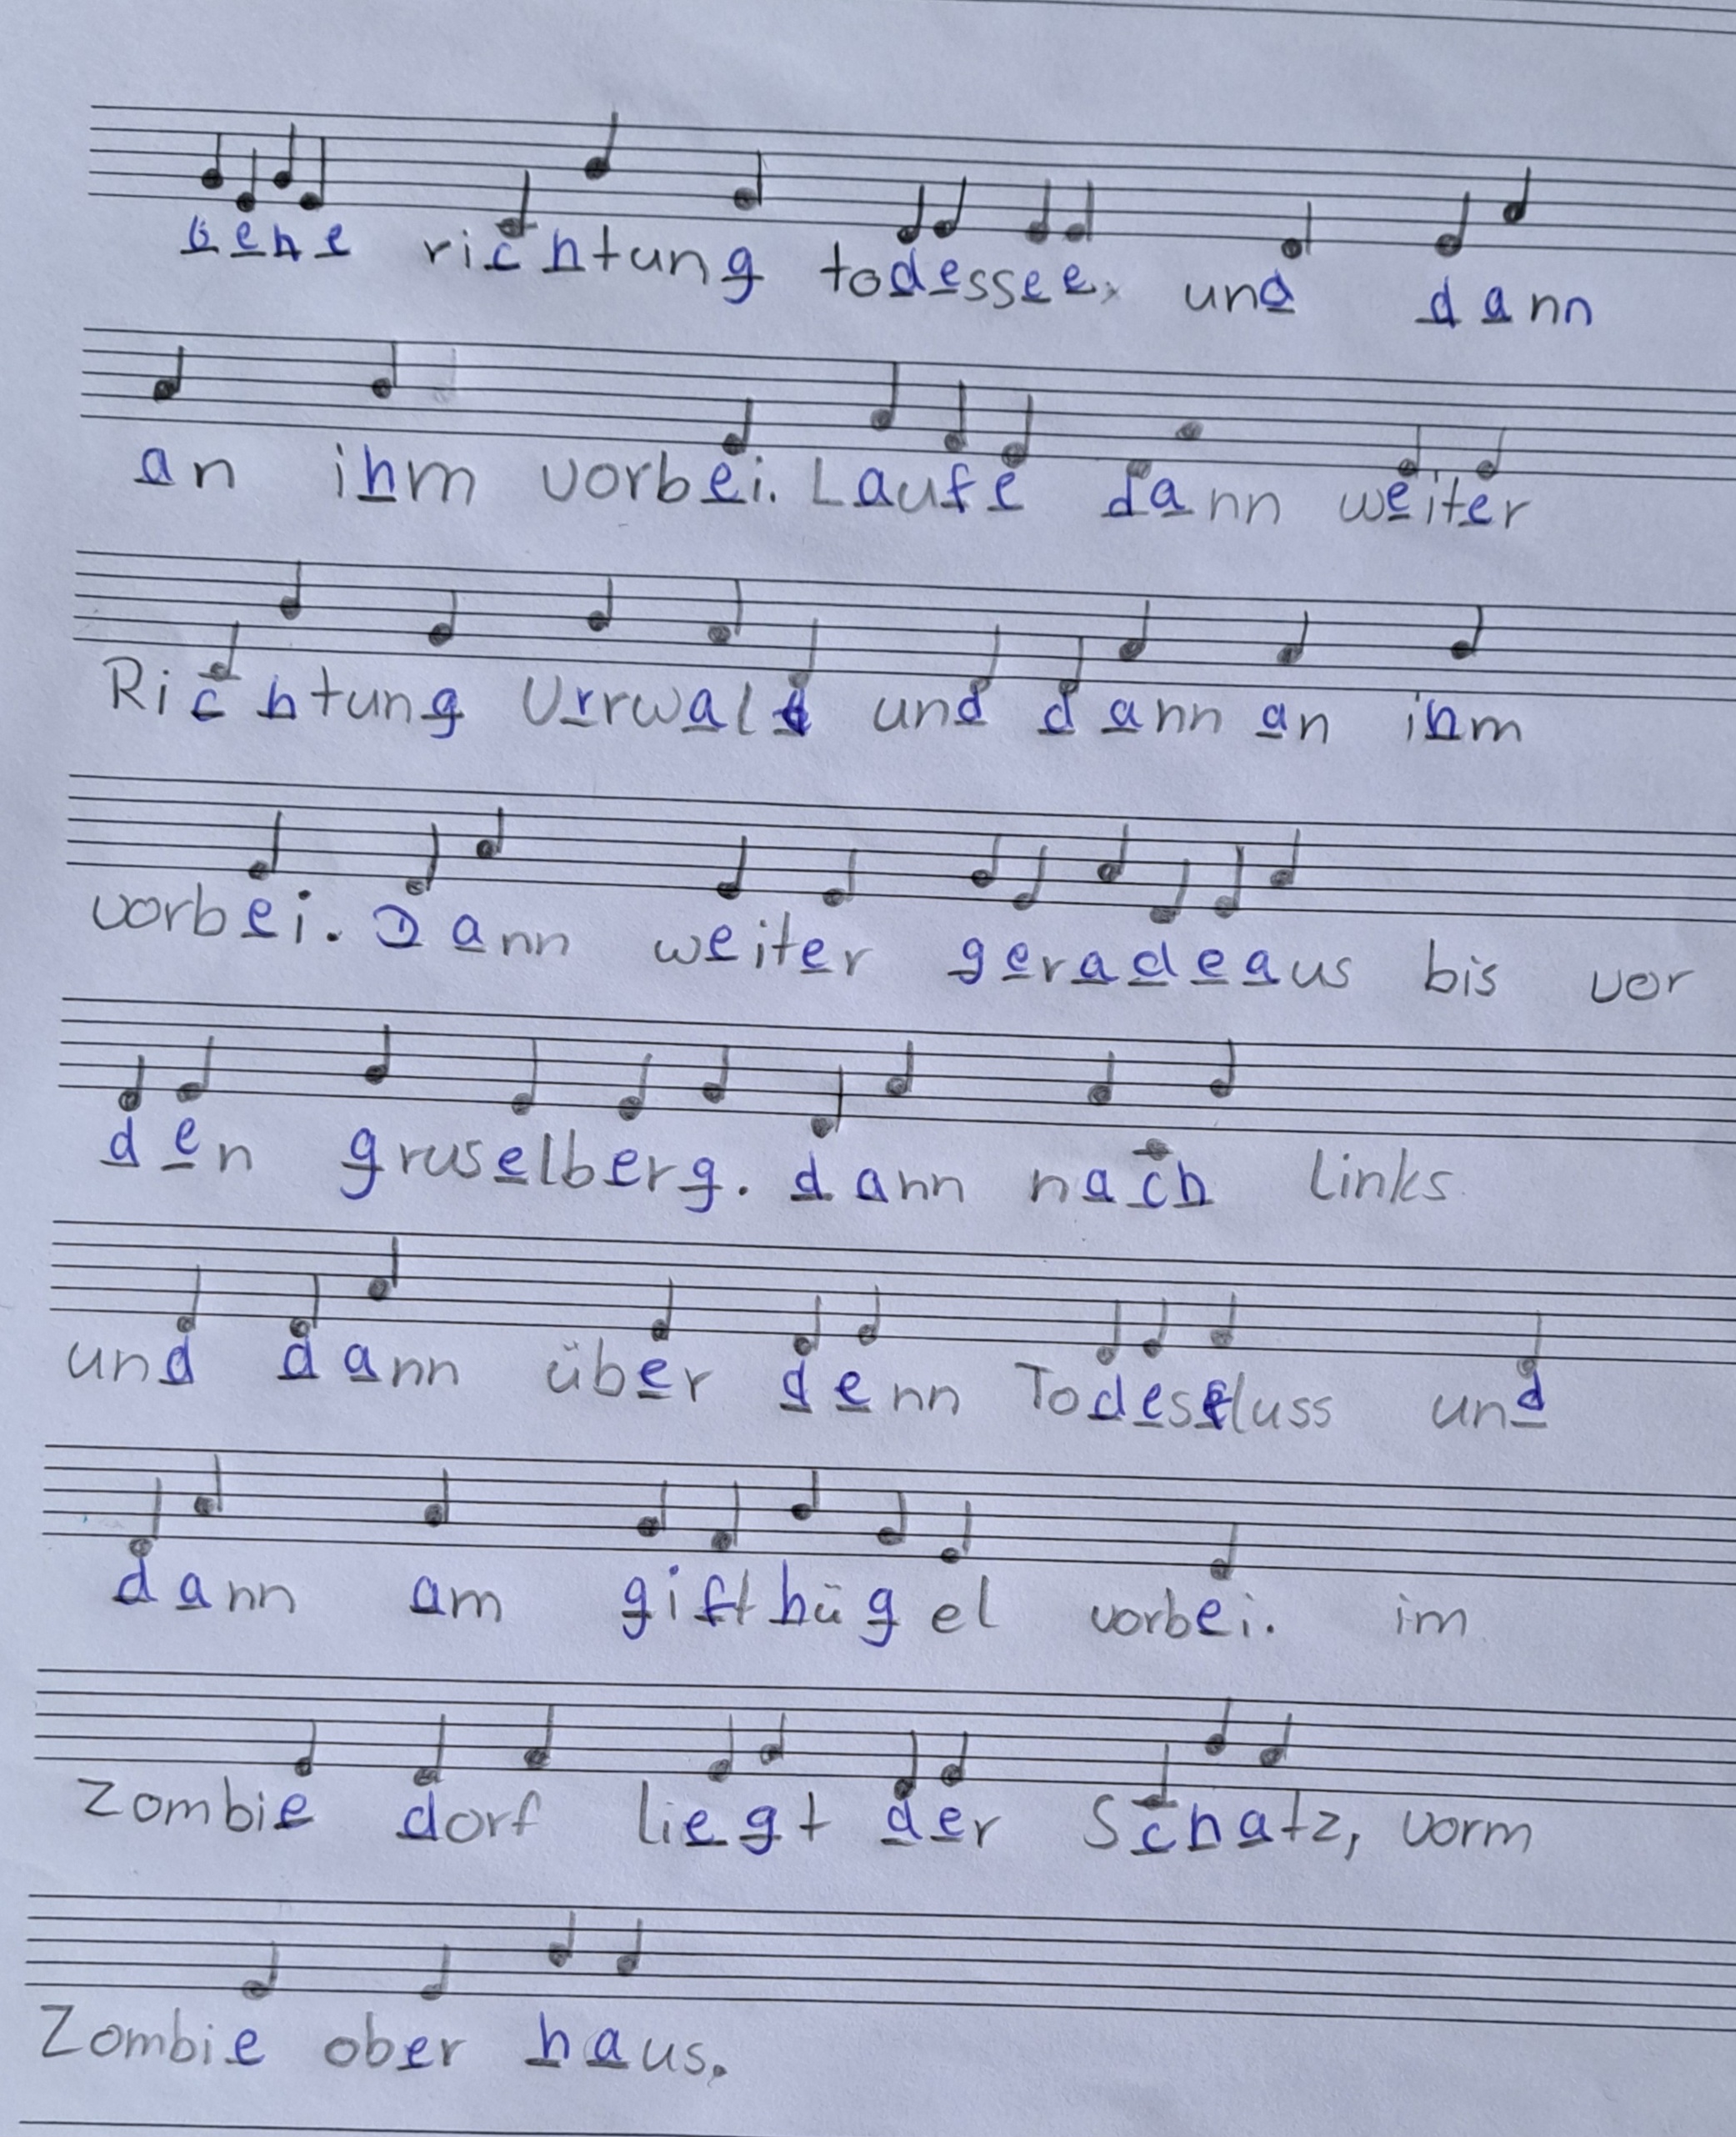 Gehe richtung todessee, und dann
an ihm vorbei. Laufe dann weiter
Richtung Urrwald und dann an ihm
vorbei. Dann weiter geradeaus bis vor
den gruselberg. dann nach links
und dann über denn Todesfluss und
dann am gifthügel vorbei. im
Zombie dorf liegt der Schatz, vorm
Zombie ober haus.